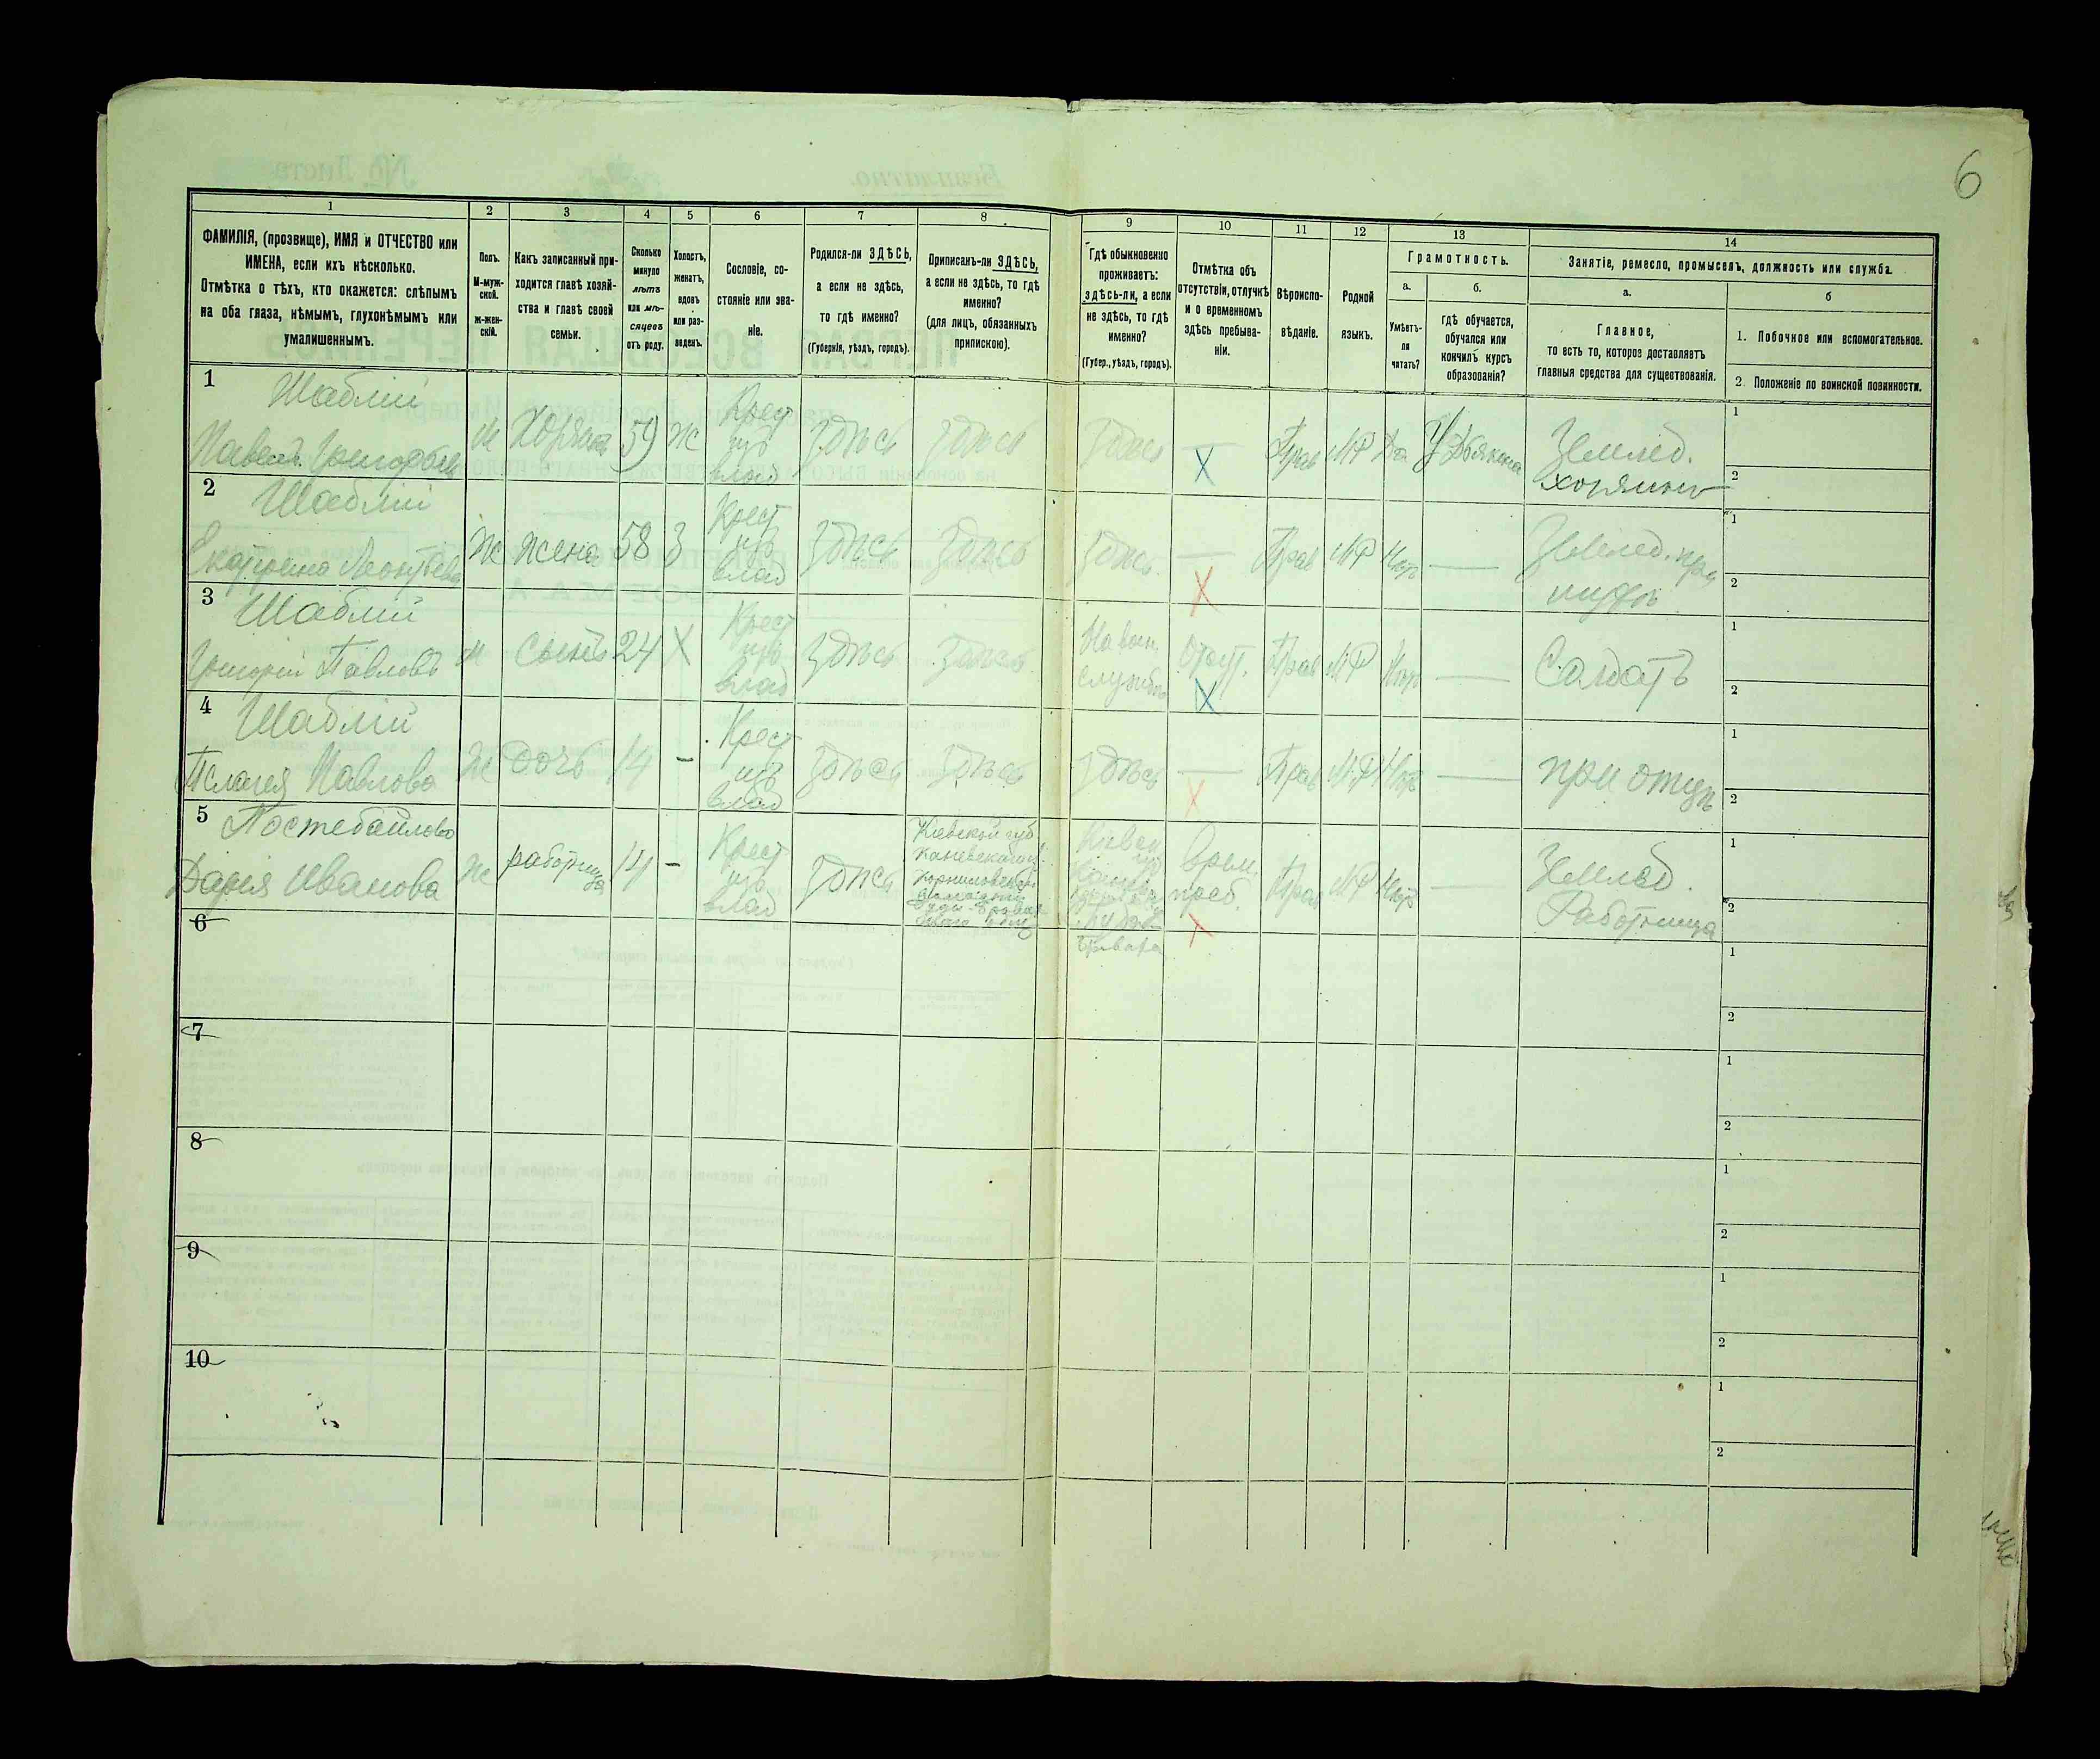 6
1
2
3
4
5
6
7
8
9
10
11
12
13
14
ФАМИЛІЯ, (прозвище), ИМЯ и ОТЧЕСТВО или
ИМЕНА, если ихъ нѣсколько.
Отмѣтка о тѣхъ, кто окажется: слѣпымъ
на оба глаза, нѣмымъ, глухонѣмымъ или
умалишеннымъ.
Полъ.
М-муж-
ской.
ж-жен-
скій.
Какъ записанный при-
ходится главѣ хозяй-
ства и главѣ своей
семьи.
Сколько
минуло
лѣтъ
или мѣ-
сяцевъ
отъ роду.
Холостъ,
женатъ,
вдовъ
или раз-
веденъ.
Сословіе, со-
стояніе или зва-
ніе.
Родился-ли ЗДѢСЬ,
а если не здѣсь,
то гдѣ именно?
(Губернія, уѣздъ, городъ).
Приписанъ-ли ЗДѢСЬ,
а если не здѣсь, то гдѣ
именно?
(для лицъ, обязанныхъ
припискою).
Гдѣ обыкновенно
проживаетъ:
здѣсь-ли, а если
не здѣсь, то гдѣ
именно?
(Губер., уѣздъ, городъ).
Отмѣтка объ
отсутствіи, отлучкѣ
и о временномъ
здѣсь пребыва-
ніи.
Вѣроиспо-
вѣданіе.
Родной
языкъ.
Грамотность.
а.
Умѣетъ-
ли
читать?
б.
гдѣ обучается,
обучался или
кончилъ курсъ
образованія?
Занятіе, ремесло, промыселъ, должность или служба.
а.
Главное,
то есть то, которое доставляетъ
главныя средства для существованія.
б
1. Побочное или вспомогательное.
2. Положеніе по воинской повинности.
1
Шаблій
Павелъ Григорьевъ
М
Хозяинъ
59
ж
Крест
изъ
влад
здѣсь
здѣсь
здѣсь
—
Прав
МР
Да
У Дьякона
Землед.
хозяинъ
1
2
2
Шаблій
Екатерина Леонтьева
Ж
жена
58
З
Крест
изъ
влад
здѣсь
здѣсь
здѣсь
—
Прав
МР
Нѣтъ
—
Землед. при
мужѣ
1
2
3
Шаблій
Григорій Павловъ
М
сынъ
24
Х
Крест
изъ
влад
здѣсь
здѣсь
На воен.
службѣ
Отсут.
Прав
МР
Нѣтъ
—
Солдатъ
1
2
4
Шаблій
Пелагея Павлова
Ж
дочь
14
-
Крест
изъ
влад
здѣсь
здѣсь
здѣсь
—
Прав
МР
Нѣтъ
—
при отцѣ
1
2
5
Дарія Иванова
Ж
работница
14
-
Крест
изъ
влад
здѣсь
Кіевской губ.
Каневскаго у.
Врем.
преб.
Прав
МР
Нѣтъ
—
Землед.
Работница
1
2
6
1
2
7
1
2
8
1
2
9
1
2
10
1
2